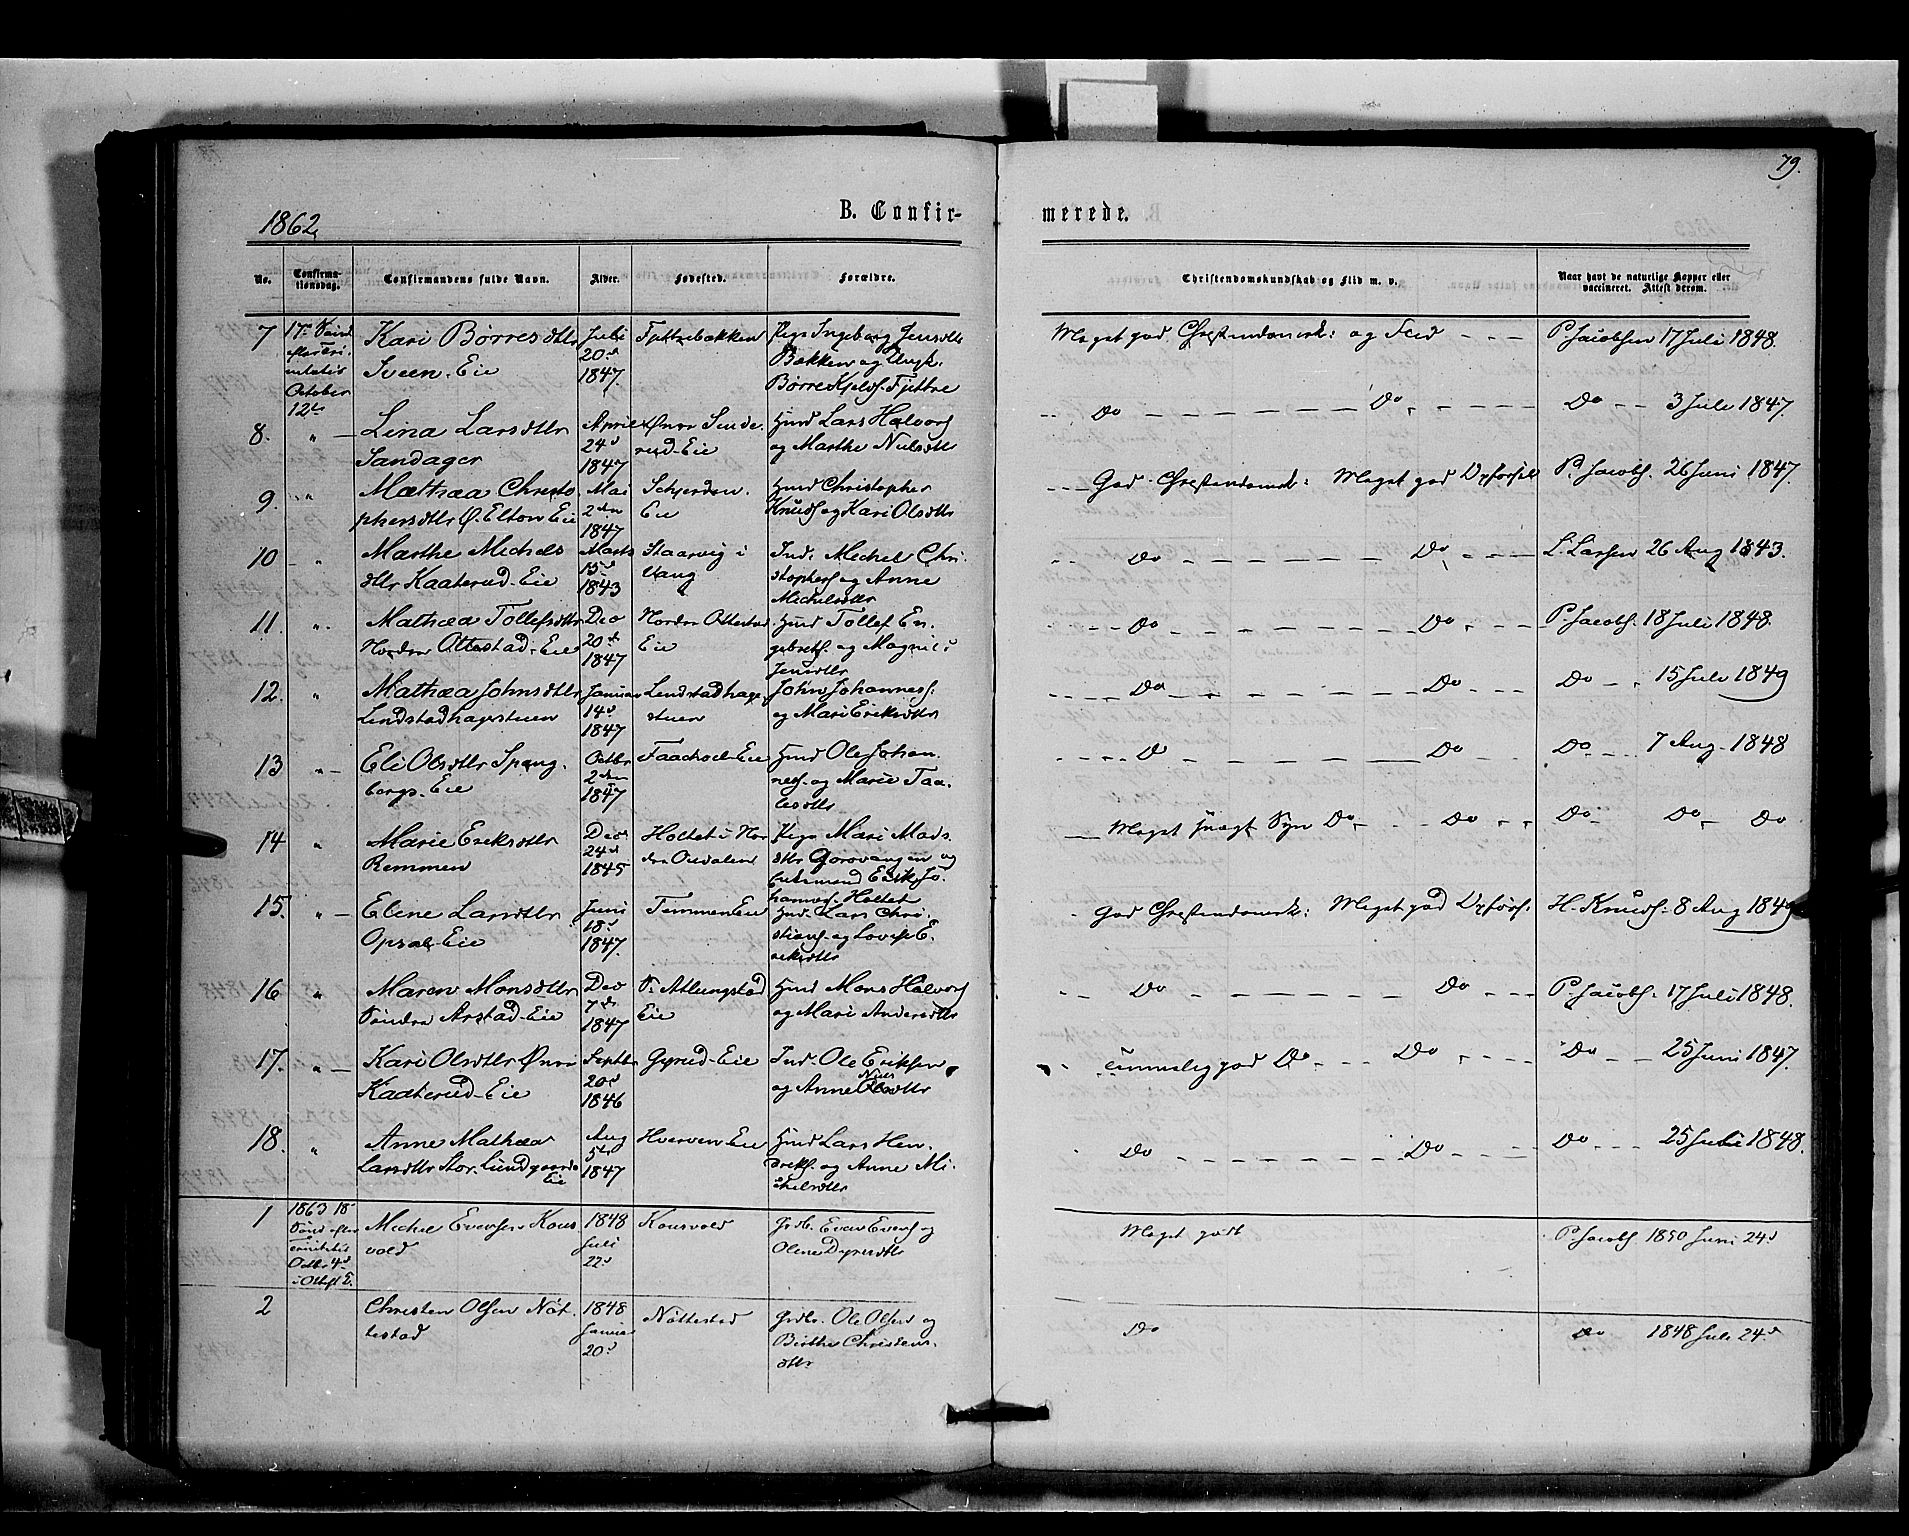 79.
1862
B. Confir-
merede.
No.
Confirma-
tionsdag.
Confirmandens fulde Navn.
Alder.
Fødested.
Forældre.
Christendomskundskab og Flid m. v.
Naar havt de naturlige Kopper eller
vaccineret. Attest derom.
7
17. Sønd
efter Tri-
nitatis
October
12te
Kari Børresdtr
Sveen-Eie
Juli
20de
1847.
Fjettrebakken
Pige Ingeborg Jensdtr
Bakken og Ungk.
Børre Kjelds. Fjettre
Meget god Christendomsk: og Flid - - -
P. Jacobsen 17 Juli 1848.
8.
" -
Lina Larsdtr
Sandager
April
24de
1847
Øvor Sende-
rud-Eie
Hmd Lars Halvors
og Marthe Nielsdtr
Do - - - Do - - -
Do - - 3 Juli 1847
9.
"
Mathæa Christo
phersdtr Ø. Elton Eie
Mai
2den
1847
Schjerden-
Eie
Hmd Christopher
Knuds og Kari Olsdtr
God Christendomsk: Meget god
P. Jacobs. 26 Juni 1847.
10
"
Marthe Michels
dtr Kaaterud-Eie
Marts
15de
1843
Staarvig i
Vang
Ind. Michel Chri-
stophers og Anne
Michelsdtr
Do - - - Do - - -
L. Larsen 26 Aug 1843.
11.
"
Mathæa Tollefsdtr
Nordre Ottestad-Eie
Dec
20de
1847
Nordre Ottestad
Eie
Hmd Tollef En-
gebrets. og
Jensdtr
Do - - - Do - - -
P. Jacobs. 18 Juli 1848.
12.
"
Mathæa Johnsdtr
Lindstadhagestuen
Januar
14de
1847
Lindstadhage
stuen
John Johanness.
og Mari Eriksdtr
Do - - - Do - - -
Do - - 15 Juli 1849
13
" -
Eli Olsdtr Spang-
bergs-Eie
Octbr
2den
1847
Hmd Ole Johan-
ness. og Marie Taa-
lesdtr
D - - - Do - - -
Do - - 7 Aug 1848
14
"
Marie Eriksdtr
Remmen
Dec
24de
1845
Holtet i Nor
dre Osdalen
Pige Mari Mads-
dtr Gorovangen og
Enkemand Erik Jo-
hannes. Holtet
Meget svagt Syn Do - - Do - -
Do - Do - Do
15.
" -
Eline Larsdtr
Opsal-Eie
Juni
18de
1847.
Temmen Eie
Hmd. Lars Chri-
stians. og Lovise E-
riksdtr
God Christendomsk: Meget god
H. Knuds: 8 Aug 1849
16
"
Maren Monsdtr
Søndre Arstad-Eie
Dec
7de
1847
S. Atlungstad
Eie
Hmd Mons Halvors
og Mari Andersdtr
Do - - - Do - - -
P. Jacobs. 17 Juli 1848.
17.
" -
Kari Olsdtr Øvre
Kaaterud-Eie
Septbr
20de
1846
Gyrud-Eie
Ind. Ole Eriksen
og Anne Nielsdtr
Temmelig god Do - - Do - - -
Do - - 25 Juni 1847.
18.
"
Anne Mathæa
Larsdtr Stor. Lundgaards
Eie
Aug
5te
1847
Hverven Eie
Hmd Lars Hen-
driks. og Anne Mi-
chelsdtr
Do - - - Do - - -
Do - - 25 Juli 1848.
1
1863 18
Sønd efter
Trinitatis
Octbr 4de
Michel Evensen Kons
vold
1848
Juli
22de
Konsvold
Grdb. Even Evens og
Oline Dyresdtr
Meget godt
P. Jacobs. 1850 Juni 24de
2
Christen Olsen Nöt-
testad
1848
Januar
20de
Nöttestad
Grdbr. Ole Olsen og
Birthe Christens-
dtr
Do
Do 1848 Juli 24de